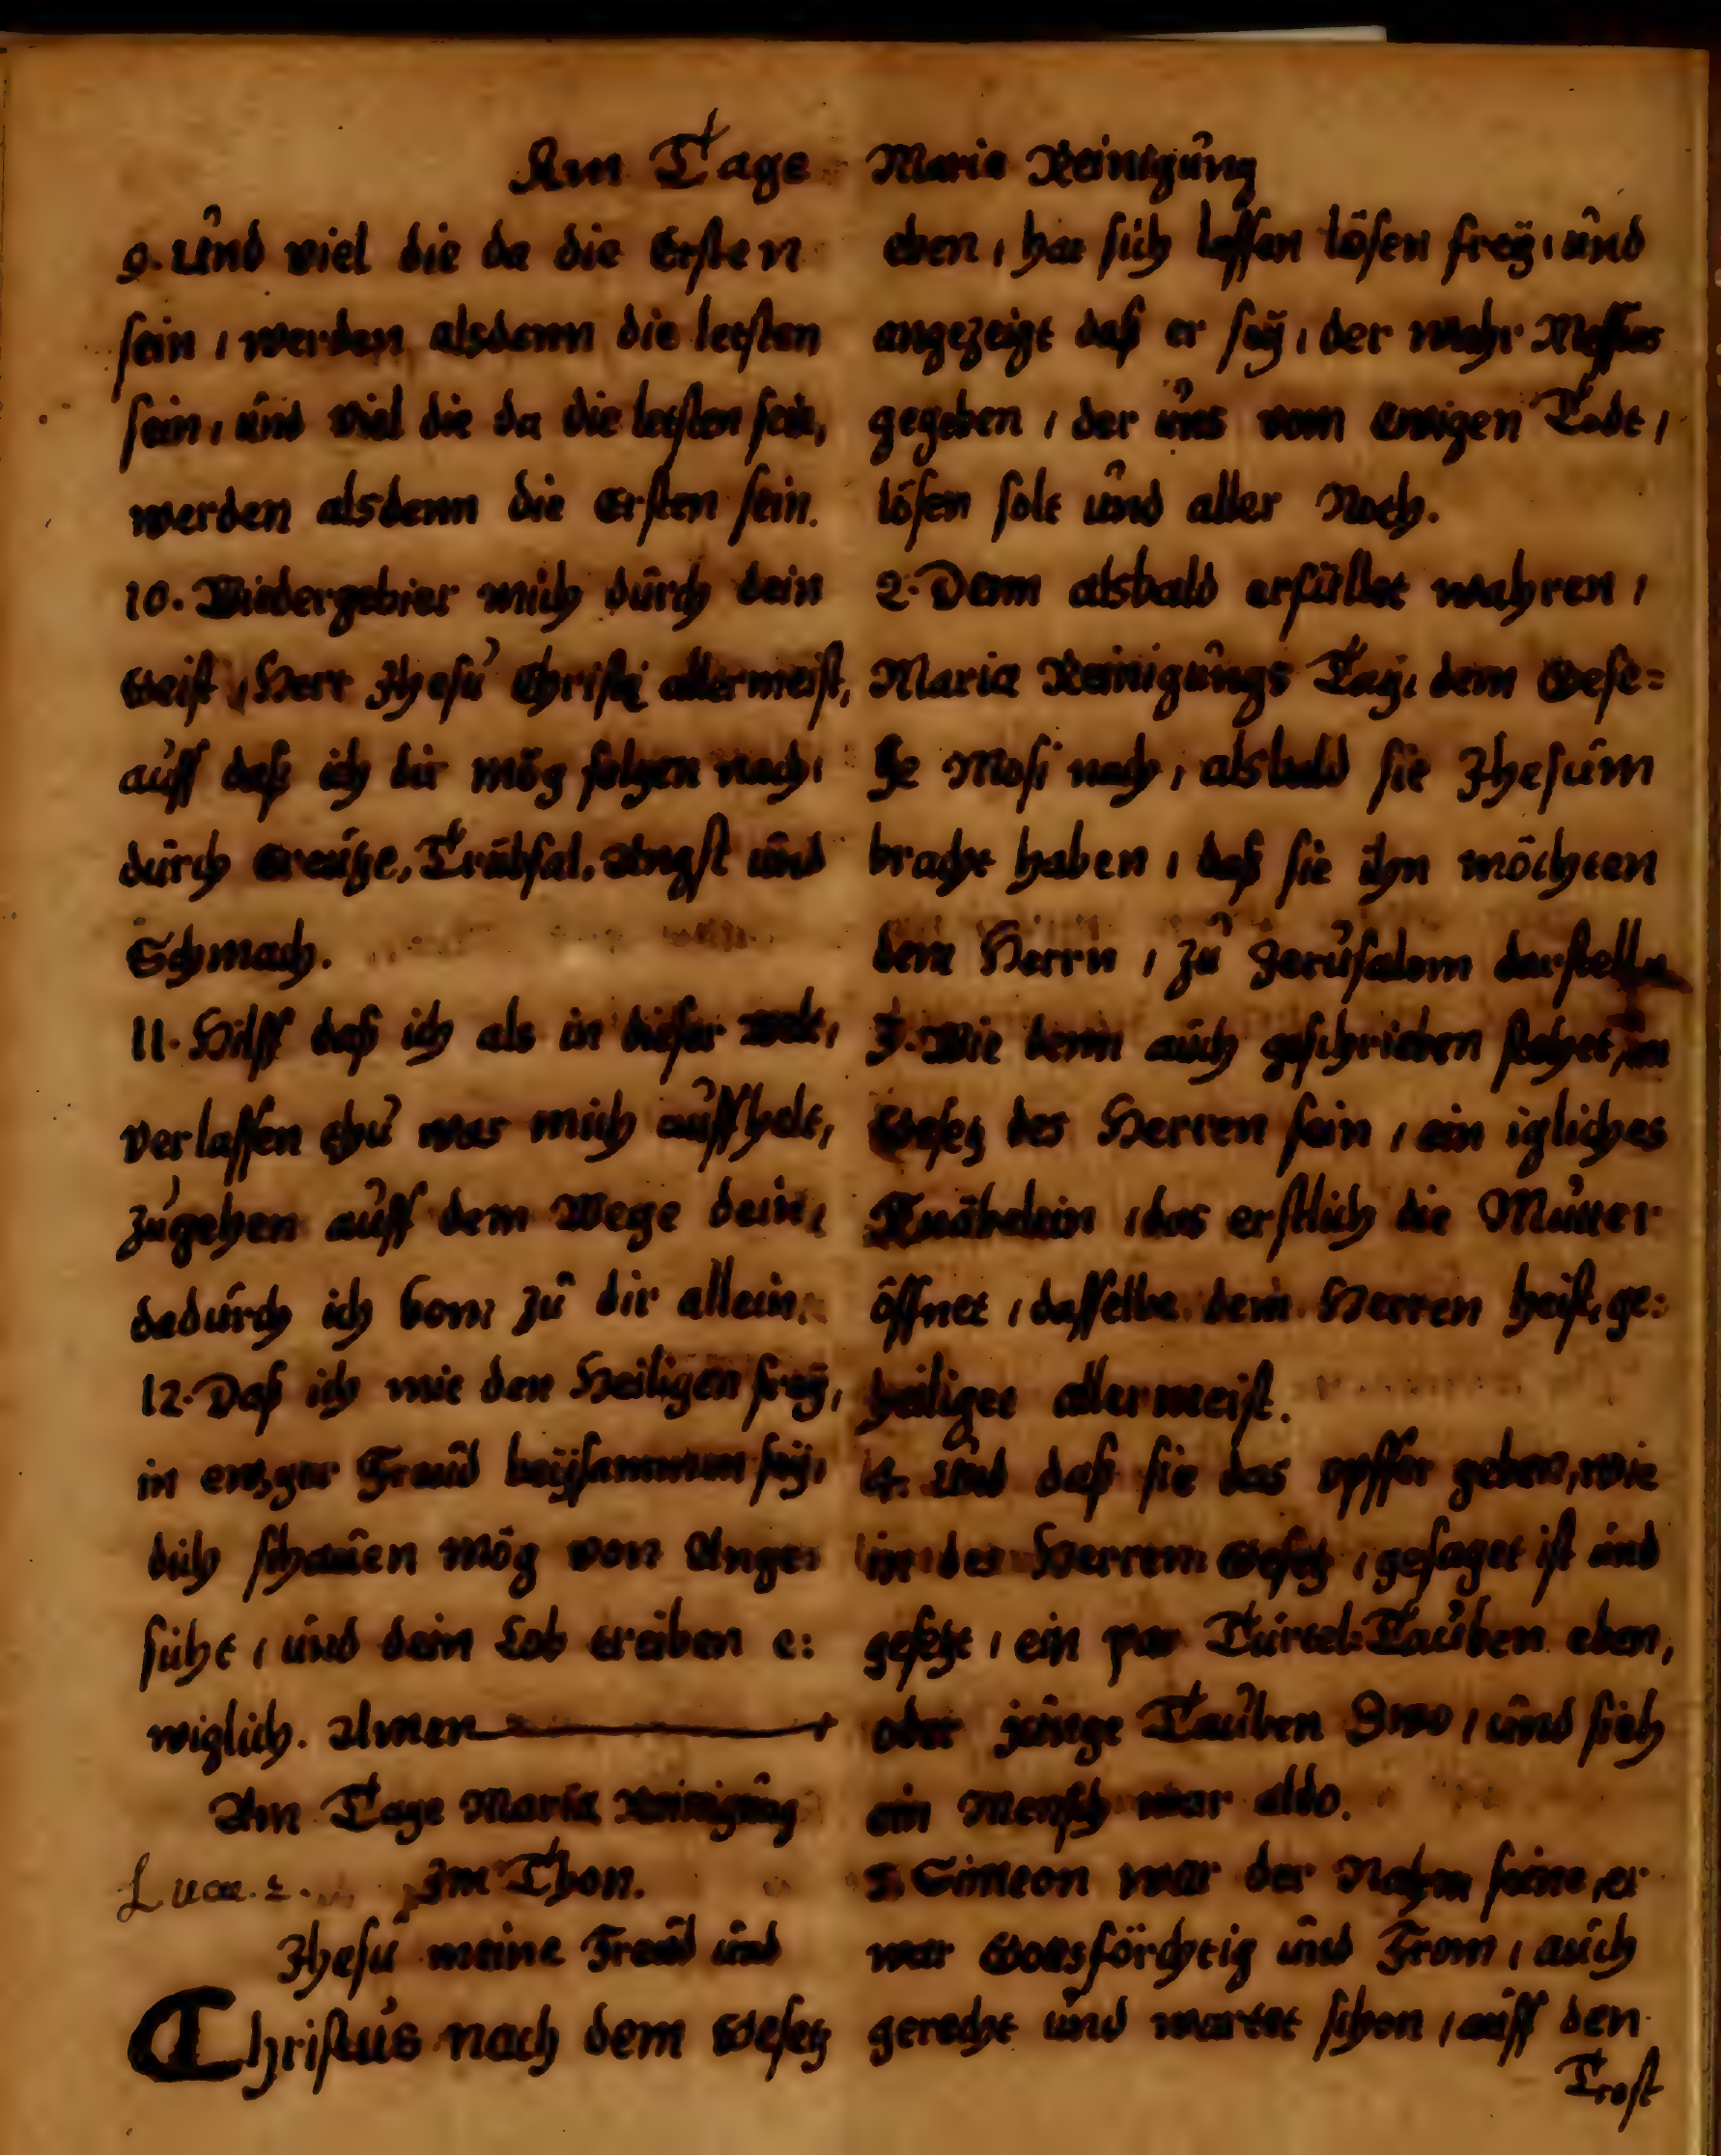 Am Tage Maria Reinigung
9. Und viel die da die Ersten
sein, werden alsdenn die letsten
sein, und viel die da die letsten sein,
werden alsdenn die Ersten sein.
10. Wiedergebier mich durch dein
Geist, Herr Jhesu Christi allermeist,
auff daß ich dir mög folgen nach,
durch Creutze, Trübsal, Angst und
Schmach.
11. Hilff daß ich als in dieser Welt,
verlassen thu was mich auffhelt,
zugehen auff dem Wege dein,
dadurch ich kom zu dir allein.
12. Daß ich mit den Heiligen frey,
in ewger Freud beysammen sey,
dich schauen mög von Ange-
sicht, und dein Lob treiben e:
wiglich. Amen
Am Tage Maria Reinigung
Luca. 2. Im Thon.
Jhesu meine Freud und
Christus nach dem Gesetz
eben, hat sich lassen lösen frey, und
angezeigt daß er sey, der wahr Messias
gegeben, der uns vom Ewigen Todt,
lösen solt und aller Noth.
2. Denn alsbald erfüllet wahren,
Maria Reinigungs Tag, dem Gese=
tze Mosi nach, alsbald sie Jhesum
bracht haben, daß sie ihn möchten
dem Herrn, zu Jerusalem darstelln
3. Wie denn auch geschrieben stehet, im
Gesetz des Herren sein, ein igliches
Knäbelein, das erstlich die Mutter
öffnet, dasselbe dem Herren heist, ge:
heiliget allermeist.
4. Und daß sie das opffer geben, wie
in des Herren Gesetz, gesaget ist und
gesetzt, ein par Turtel=Tauben eben,
oder junge Tauben Zwo, und sieh
ein Mensch war aldo.
5. Simeon war der Nahm seine, er
war Gottsförchtig und From, auch
gerecht und wartet schon, auff den
Trost